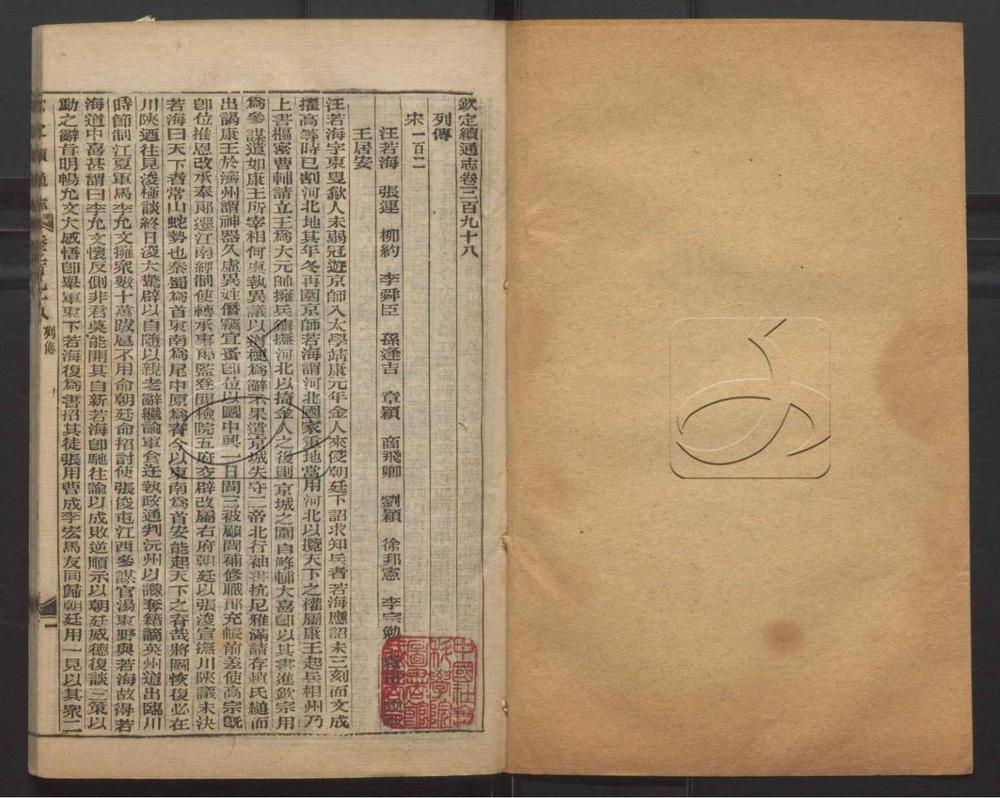 欽定續通志卷三百九十八
列傳
宋一百二
汪若海 張運 柳約 李舜臣 孫逢吉 章穎 商飛卿 劉穎 徐邦憲 李宗勉
王居安
汪若海字東叟歙人未弱冠遊京師入太學靖康元年金人來侵朝廷下詔求知兵者若海應詔未三刻而文成
擢高等時已割河北地其年冬再圍京師若海謂河北國家重地當用河北以攬天下之權屬康王起兵相州乃
上書樞密曹輔請立王爲大元帥擁兵鎭撫河北以掎金人之後則京城之圍自解輔大喜卽以其書進欽宗用
爲參謀遣如康王所宰相何㮚執異議以道梗爲辭不果遣京城失守二帝北行袖書抗尼雅滿請存趙氏縋而
出謁康王於濟州謂神器久虛異姓僭竊宜蚤卽位以圖中興一日間三被顧問補修職郞充帳前差使高宗旣
卽位推恩改承奉郞遷江南經制使轉承事郞監登聞檢院五府交辟改屬右府朝廷以張浚宣撫川陝議未決
若海曰天下者常山蛇勢也秦蜀爲首東南爲尾中原爲脊今以東南爲首安能起天下之脊哉將圖恢復必在
川陝迺往見浚極談終日浚大驚辟以自隨以親老辭繼論軍食迕執政通判沅州以讒奪籍謫英州道出臨川
時節制江夏軍馬李允文擁衆數十萬跋扈不用命朝廷命招討使張俊屯江西參謀官湯東野與若海故得若
海道中喜甚謂曰李允文懷反側非君莫能開其自新若海卽馳往諭以成敗逆順示以朝廷威德復談三策以
動之辭旨明暢允文大感悟卽舉軍東下若海復爲書招其徒張用曹成李宏馬友同歸朝廷用一見以其衆二
列傳
一